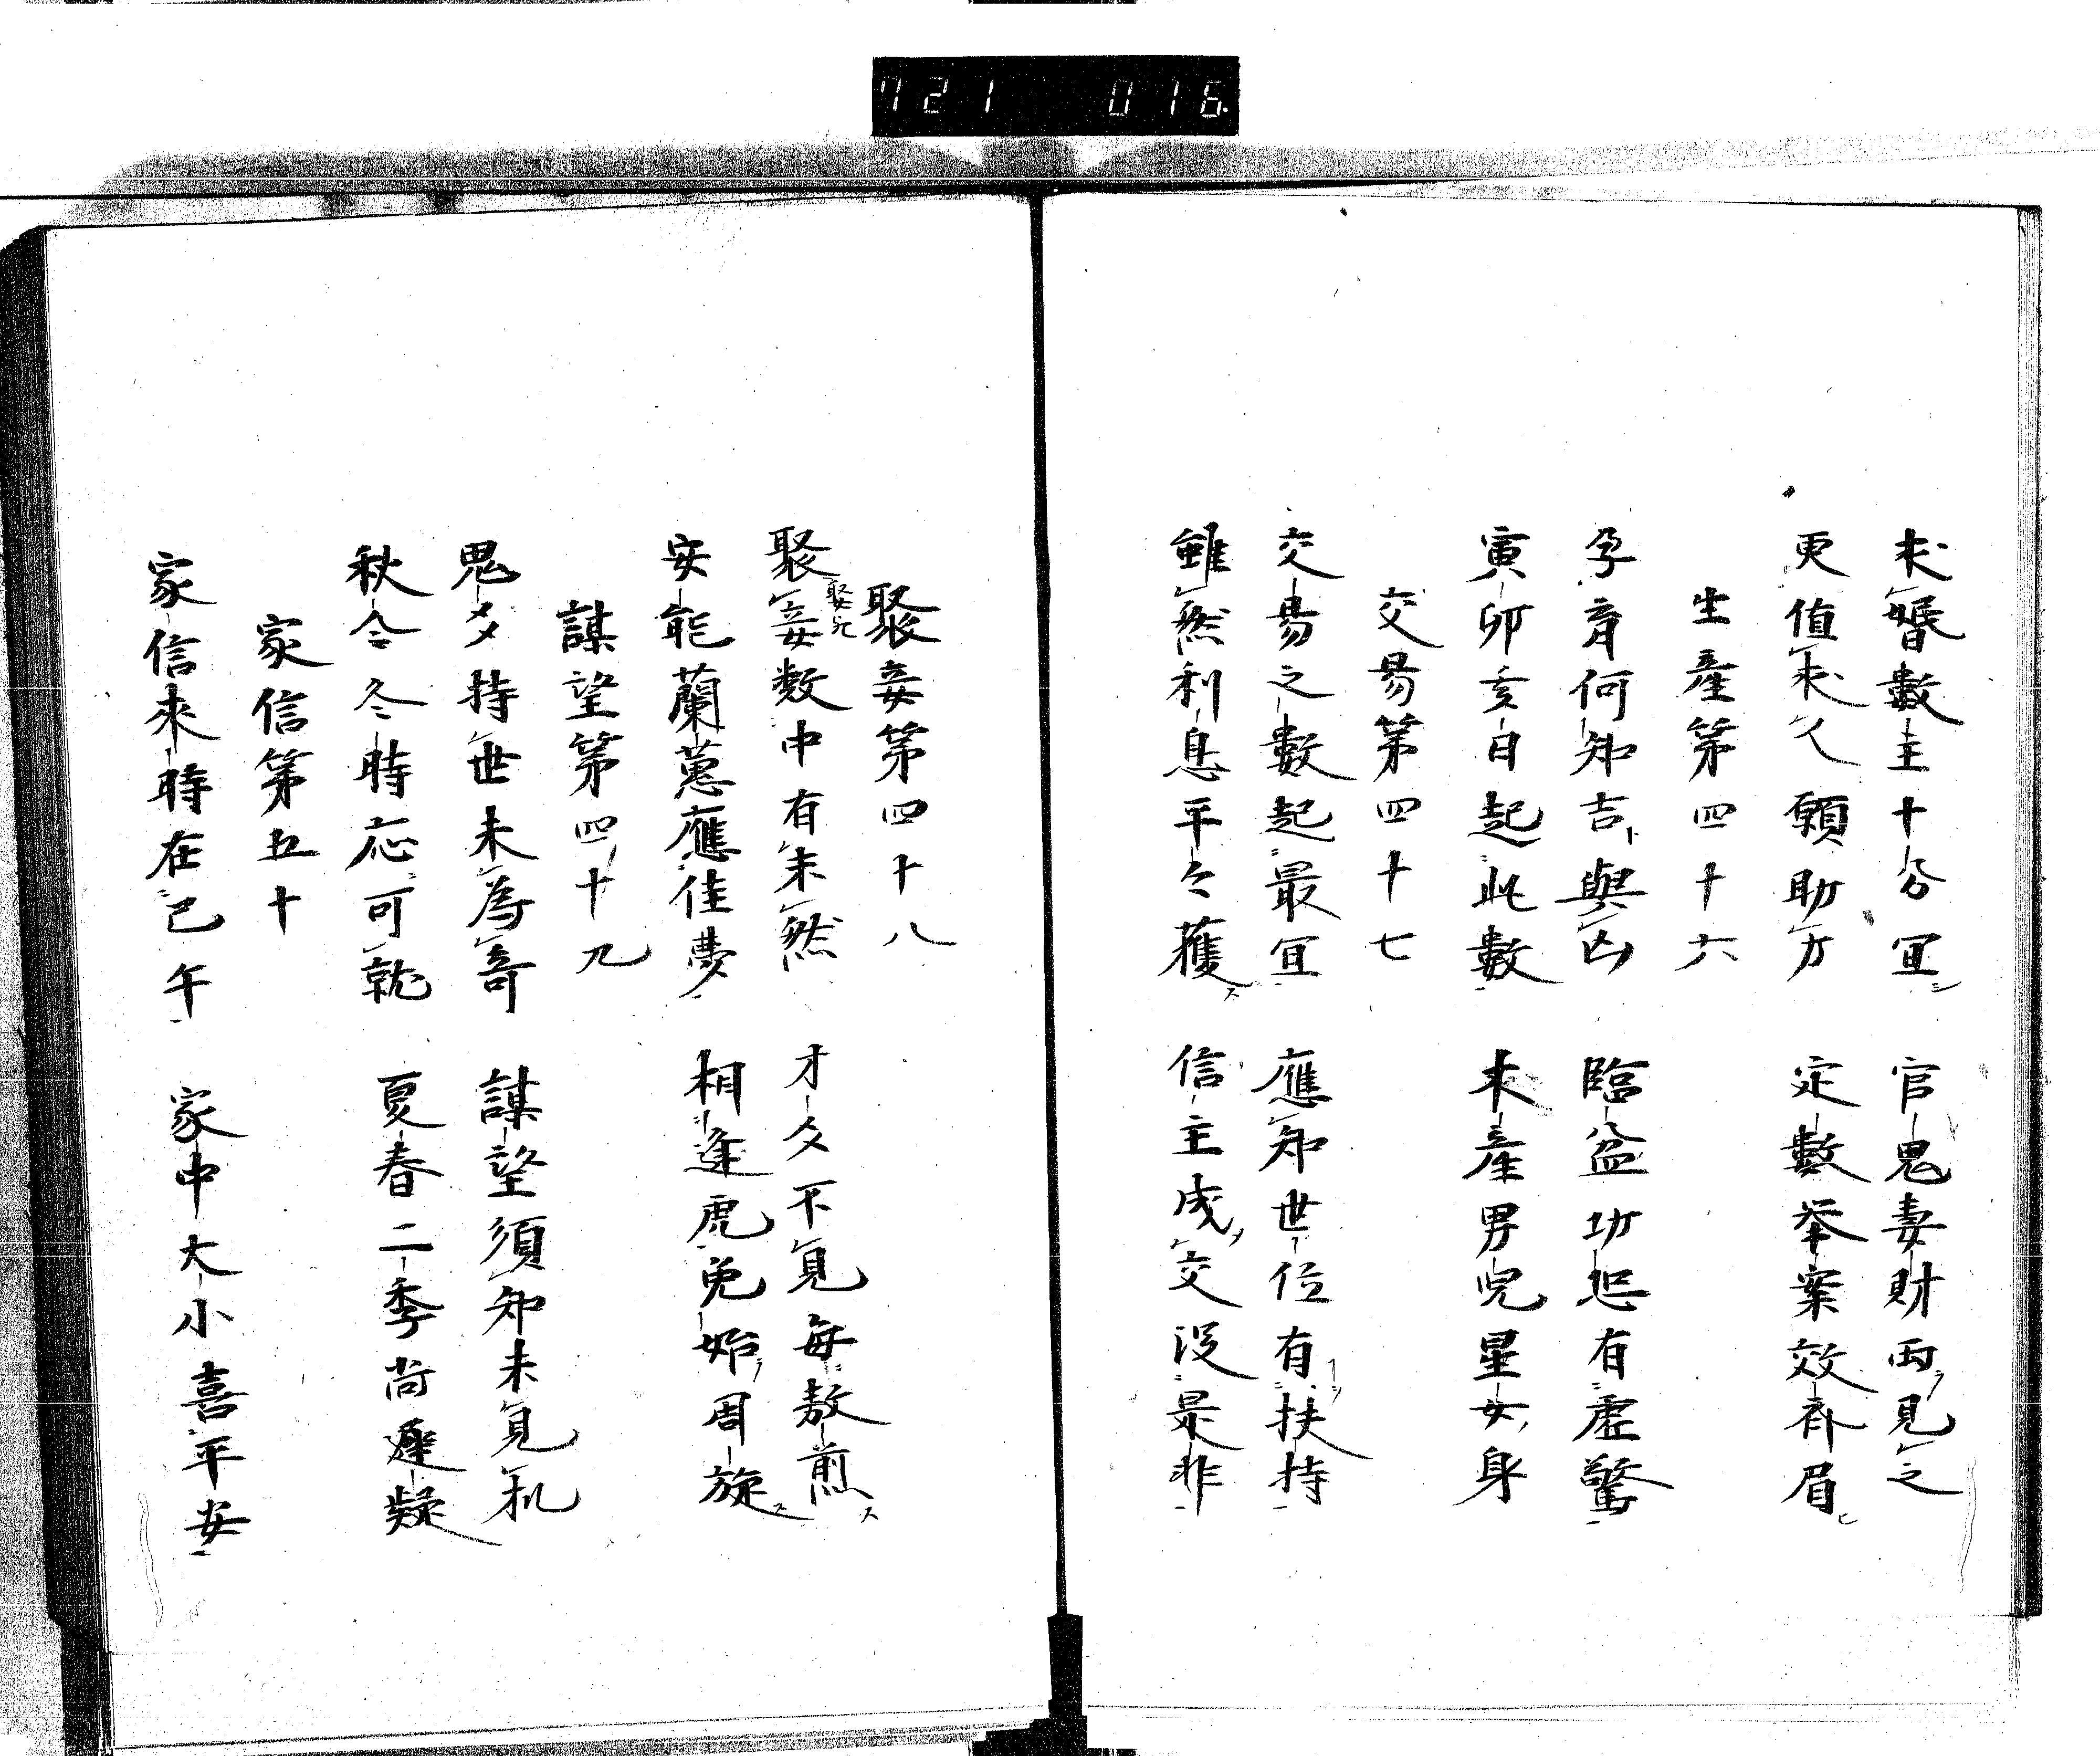 721 016
求婚數主十分宜 官鬼妻財兩見之
更值求人願助方 定數举案效齐眉
生産第四十六
孕育何知吉與凶 臨盆功㤀有虚驚
寅卯亥日起此數 未産男兒星女身
交易第四十七
交易之數起最宜 應知世位有扶持
雖然利息平々獲 信主成交没是非
聚妾第四十八
聚妾数中有未然 才爻不見每敖煎
娶欤
安能蘭蕙應佳夢 相逢虎兎始周旋
謀望第四十九
鬼爻持世未為竒 謀望須知未見机
秋令冬時応可就 夏春二季尚遲疑
家信第五十
家信來時在巳午 家中大小喜平安